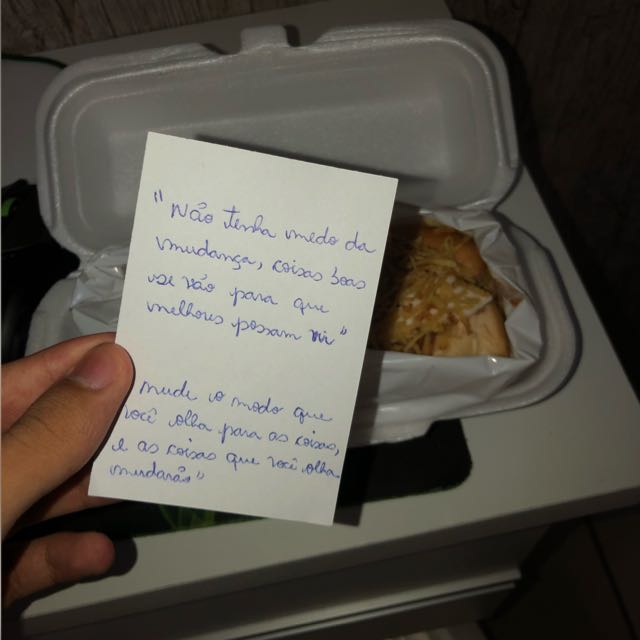 "Não tenha medo da
mudança, coisas boas
se vão para que
melhores possam vir"
mude o modo que
você olha para as coisas,
e as coisas que você olha
mudarão"